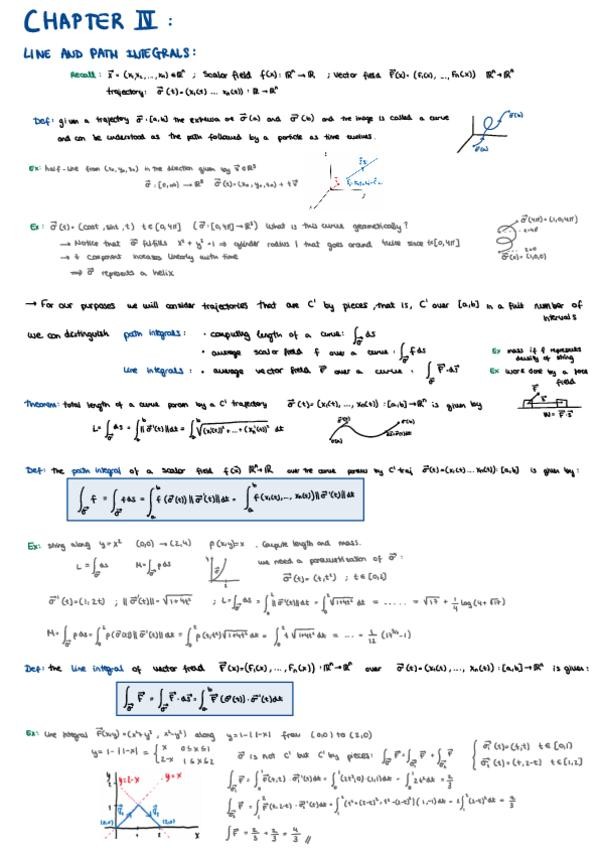 CHAPTER IV :
LINE AND PATH INTEGRALS:
Recall : x⃗ = (x₁,x₂,...,xₙ) ∈ ℝⁿ ; Scalar field f(x) : ℝⁿ → ℝ ; vector field F⃗(x) = (F₁(x), ..., Fₙ(x)) ℝⁿ → ℝⁿ
trajectory: σ⃗(t) = (x₁(t) ... xₙ(t)) : ℝ → ℝⁿ
Def: given a trajectory σ⃗ : [a,b] the extrema are σ⃗(a) and σ⃗(b) and the image is called a curve
and can be understood as the path followed by a particle as time evolves.
σ⃗(b)
σ⃗(a)
Ex: half-line from (x₀,y₀,z₀) in the direction given by v⃗ ∈ ℝ³
σ⃗ : [0,∞) → ℝ³ σ⃗(t) = (x₀,y₀,z₀) + t v⃗
Ex : σ⃗(t) = (cost, sint, t) t ∈ [0,4π] (σ⃗ : [0,4π] → ℝ³) What is this curve geometrically?
→ Notice that σ⃗ fulfills x² + y² = 1 ⇒ cylinder radius 1 that goes around twice since t∈[0,4π]
→ z component increases linearly with time
⇒ σ⃗ represents a helix
σ⃗(4π) = (1,0,4π)
σ⃗(0) = (1,0,0)
→ For our purposes we will consider trajectories that are C¹ by pieces, that is, C¹ over [a,b] in a finit number of
intervals
we can distinguish path integrals : · computing length of a curve: ∫σ⃗ ds
· average scalar field f over a curve : ∫σ⃗ f ds
Ex mass if f represents
density of string
line integrals : · average vector field F⃗ over a curve : ∫σ⃗ F⃗ · ds⃗
Ex work done by a force
field
W = F⃗ · s⃗
Theorem: total length of a curve param by a C¹ trajectory σ⃗(t) = (x₁(t), ..., xₙ(t)) : [a,b] → ℝⁿ is given by
L = ∫σ⃗ ds = ∫ₐᵇ ||σ⃗'(t)|| dt = ∫ₐᵇ √((x₁'(t))² + ... + (xₙ'(t))²) dt
Def: the path integral of a scalar field f(x⃗) ℝⁿ → ℝ over the curve param by C¹ traj σ⃗(t) = (x₁(t) ... xₙ(t)) : [a,b] is given by :
∫σ⃗ f = ∫σ⃗ f ds = ∫ₐᵇ f(σ⃗(t)) ||σ⃗'(t)|| dt = ∫ₐᵇ f(x₁(t),..., xₙ(t)) ||σ⃗'(t)|| dt
Ex: string along y = x² (0,0) → (2,4) ρ(x,y) = x . Compute length and mass.
L = ∫σ⃗ ds M = ∫σ⃗ ρ ds
we need a parametrization of σ⃗ :
σ⃗(t) = (t,t²) ; t ∈ [0,2]
σ⃗'(t) = (1, 2t) ; ||σ⃗'(t)|| = √(1+4t²) ; L = ∫σ⃗ ds = ∫₀² ||σ⃗'(t)|| dt = ∫₀² √(1+4t²) dt = ..... = √17 + 1/4 log(4+√17)
M = ∫σ⃗ ρ ds = ∫₀² ρ(σ⃗(t)) ||σ⃗'(t)|| dt = ∫₀² ρ(t,t²) √(1+4t²) dt = ∫₀² t √(1+4t²) dt = ... = 1/12 (17^(3/2) - 1)
Def: the line integral of vector field F⃗(x) = (F₁(x), ..., Fₙ(x)) : ℝⁿ → ℝⁿ over σ⃗(t) = (x₁(t), ..., xₙ(t)) : [a,b] → ℝⁿ is given :
∫σ⃗ F⃗ = ∫σ⃗ F⃗ · ds⃗ = ∫ₐᵇ F⃗(σ⃗(t)) · σ⃗'(t) dt
Ex: line integral F⃗(x,y) = (x²+y², x²-y²) along y = 1-|1-x| from (0,0) to (2,0)
y = 1-|1-x| = { x 0≤x≤1
2-x 1≤x≤2
σ⃗ is not C¹ but C¹ by pieces : ∫σ⃗ F⃗ = ∫σ⃗₁ F⃗ + ∫σ⃗₂ F⃗
{ σ⃗₁(t) = (t,t) t ∈ [0,1)
σ⃗₂(t) = (t, 2-t) t ∈ [1,2]
∫σ⃗₁ F⃗ = ∫₀¹ F⃗(t,t) · σ⃗₁'(t) dt = ∫₀¹ (2t²,0) (1,1) dt = ∫₀¹ 2t² dt = 2/3
∫σ⃗₂ F⃗ = ∫₁² F⃗(t, 2-t) · σ⃗₂'(t) dt = ∫₁² (t²+(2-t)², t²-(2-t)²) (1,-1) dt = 2∫₁² (2-t)² dt = 2/3
∫F⃗ = 2/3 + 2/3 = 4/3 //
y
y=2-x
y=x
1
(0,0)
1
(2,0)
x